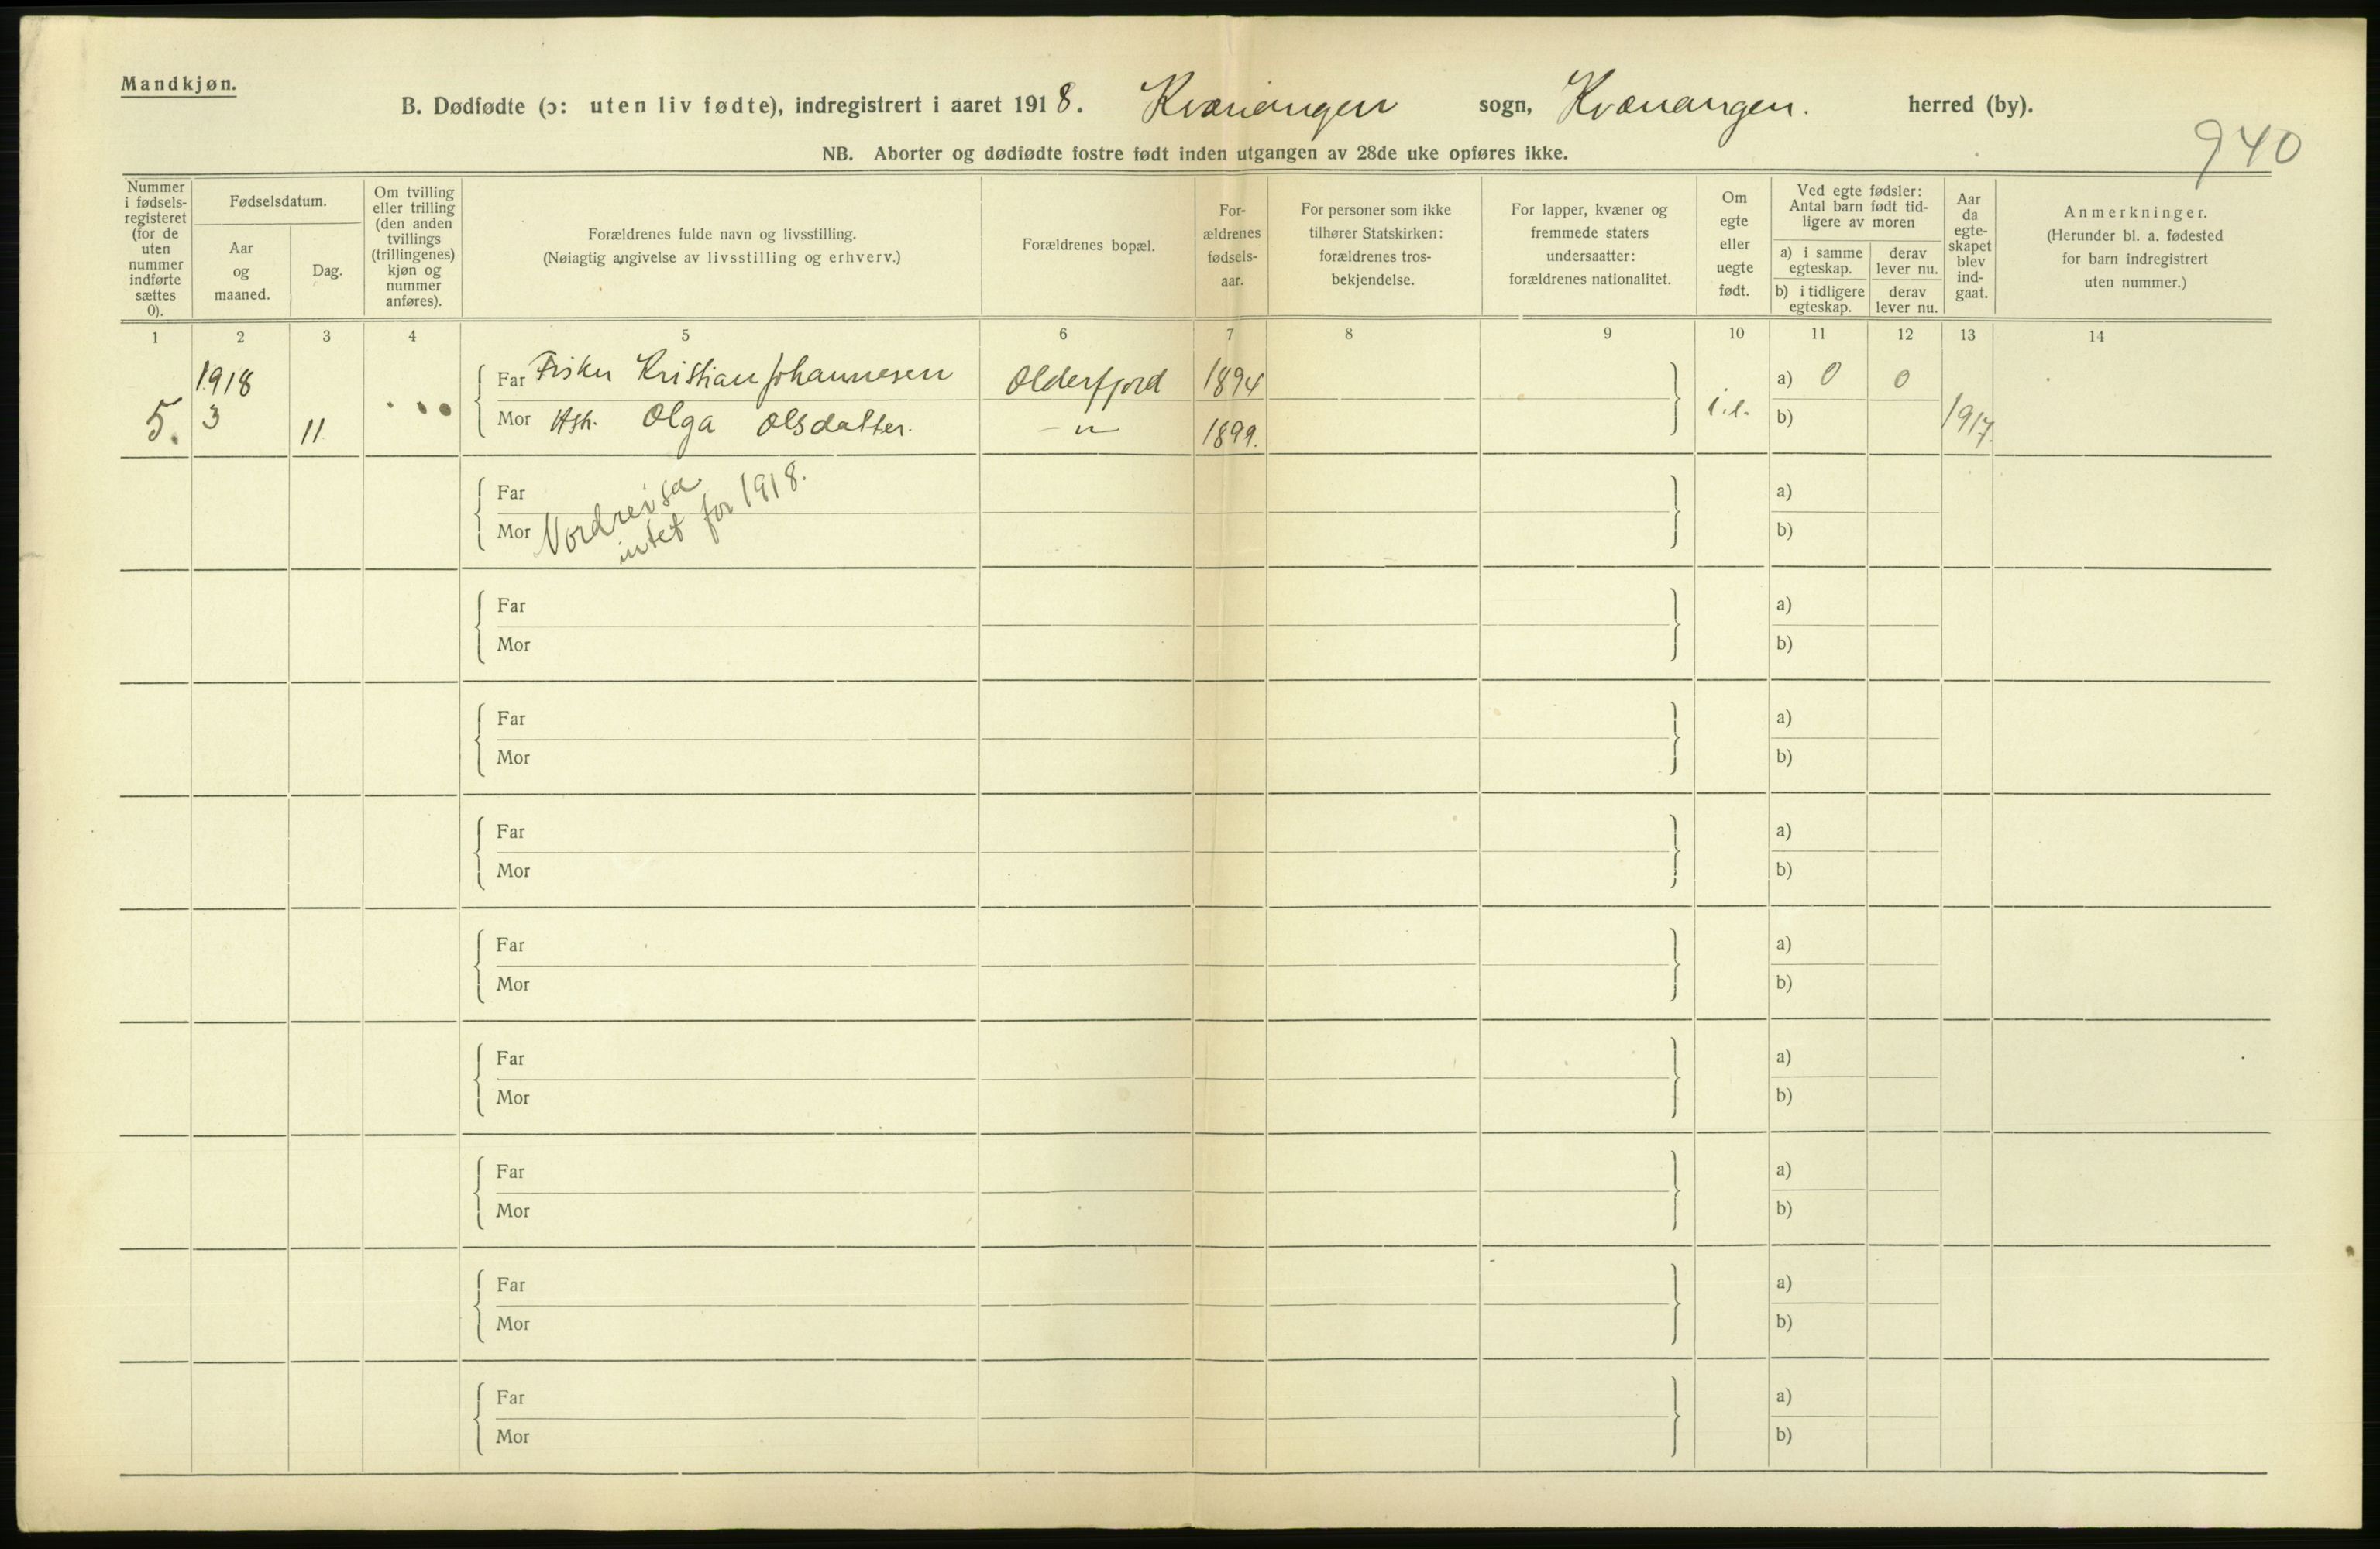 Mandkjøn.
B. Dødfødte (ɔ: uten liv fødte), indregistrert i aaret 1918. Kvænangen sogn, Kvænangen. herred (by).
940
NB. Aborter og dødfødte fostre født inden utgangen av 28de uke opføres ikke.
Nummer
i fødsels-
registeret
(for de
uten
nummer
indførte
sættes
0).
Fødselsdatum.
Aar
og
maaned.
Dag.
Om tvilling
eller trilling
(den anden
tvillings
(trillingenes)
kjøn og
nummer
anføres).
Forældrenes fulde navn og livsstilling.
(Nøiagtig angivelse av livsstilling og erhverv.)
Forældrenes bopæl.
For-
ældrenes
fødsels-
aar.
For personer som ikke
tilhører Statskirken:
forældrenes tros-
bekjendelse.
For lapper, kvæner og
fremmede staters
undersaatter:
forældrenes nationalitet.
Om
egte
eller
uegte
født.
Ved egte fødsler:
Antal barn født tid-
ligere av moren
a) i samme
egteskap.
derav
lever nu.
b) i tidligere
egteskap.
derav
lever nu.
Aar
da
egte-
skapet
blev
ind-
gaat.
Anmerkninger.
(Herunder bl. a. fødested
for barn indregistrert
uten nummer.)
1 2 3 4 5 6 7 8 9 10 11 12 13 14
1918
Far Fisker Kristian Johannesen Olderfjord 1894 a) 0 0
5. 3 11 Mor Hst. Olga Olsdatter. – " – 1899. b) 1917.
Far a)
Mor b)
Nordreisa
intet for 1918.
Far a)
Mor b)
Far a)
Mor b)
Far a)
Mor b)
Far a)
Mor b)
Far a)
Mor b)
Far a)
Mor b)
Far a)
Mor b)
Far a)
Mor b)